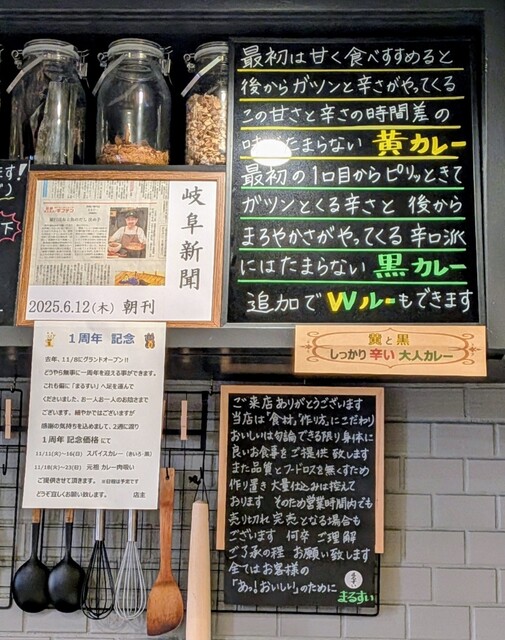 最初は甘く食べすすめると
後からガツンと辛さがやってくる
この甘さと辛さの時間差の
たまらない 黄カレー
最初の1口目からピリッときて
ガツンとくる辛さと 後から
まろやかさがやってくる 辛口派
にはたまらない 黒カレー
追加でWルーもできます
黄と黒
しっかり辛い大人カレー
岐阜新聞
2025.6.12(木) 朝刊
1周年 記念
去年、11/8にグランドオープン!!
どうやら無事に一周年を迎える事ができます。
これも偏に「まるすい」へ足を運んで
くださいました、お一人お一人のお陰さまで
ございます。細やかではございますが
感謝の気持ちを込めまして、2週に渡り
1周年 記念価格 にて
11/11(火)~16(日) スパイスカレー(きいろ・黒)
11/18(火)~23(日) 元祖 カレー肉吸い
ご提供させて頂きます。 ※日程は予定です
どうぞ宜しくお願い致します。 店主
ご来店ありがとうございます
当店は「食材」「作り方」にこだわり
おいしいは勿論できる限り身体に
良いお食事をご提供 致します
また品質とフードロスを無くすため
作り置き 大量仕込みは控えて
おります そのため営業時間内でも
売り切れ 完売となる場合も
ございます 何卒 ご理解
ご了承の程 お願い致します
全てはお客様の
「あっ!おいしい」のために
まるすい